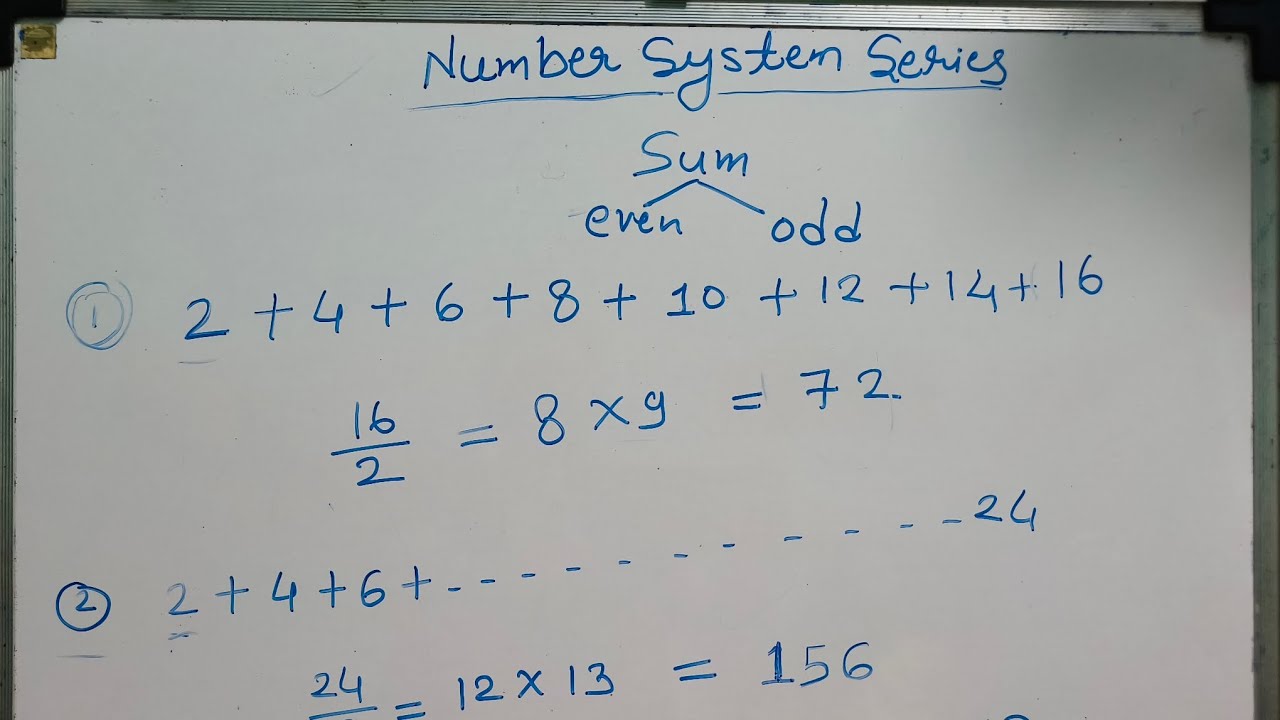 Number System Series
Sum
even odd
① 2 + 4 + 6 + 8 + 10 + 12 + 14 + 16
16/2 = 8 × 9 = 72.
② 2 + 4 + 6 + - - - - - - - - - - - 24
24/ = 12 × 13 = 156